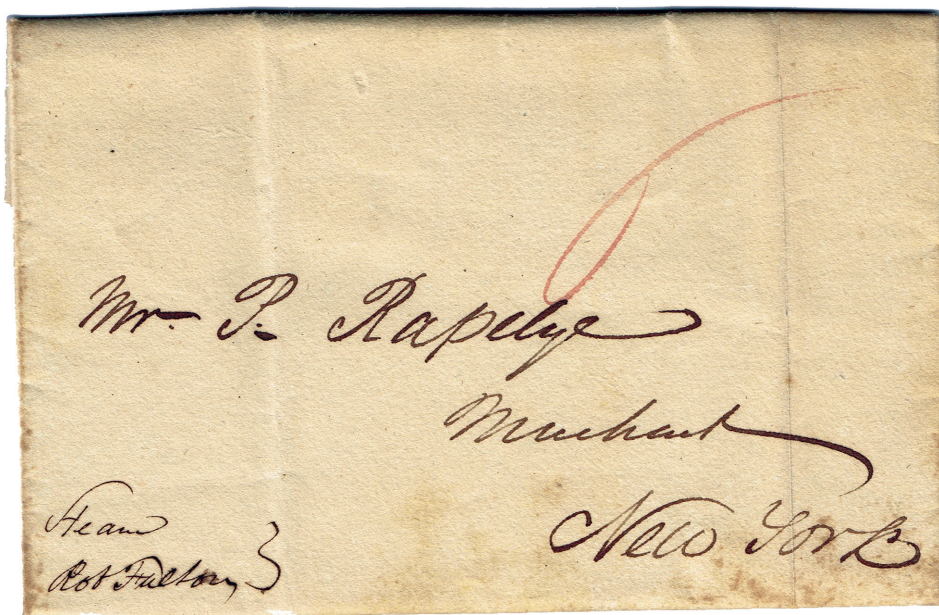 6
Mr. P. Rapelye
Merchant
New York
Steam
Rob Fulton }